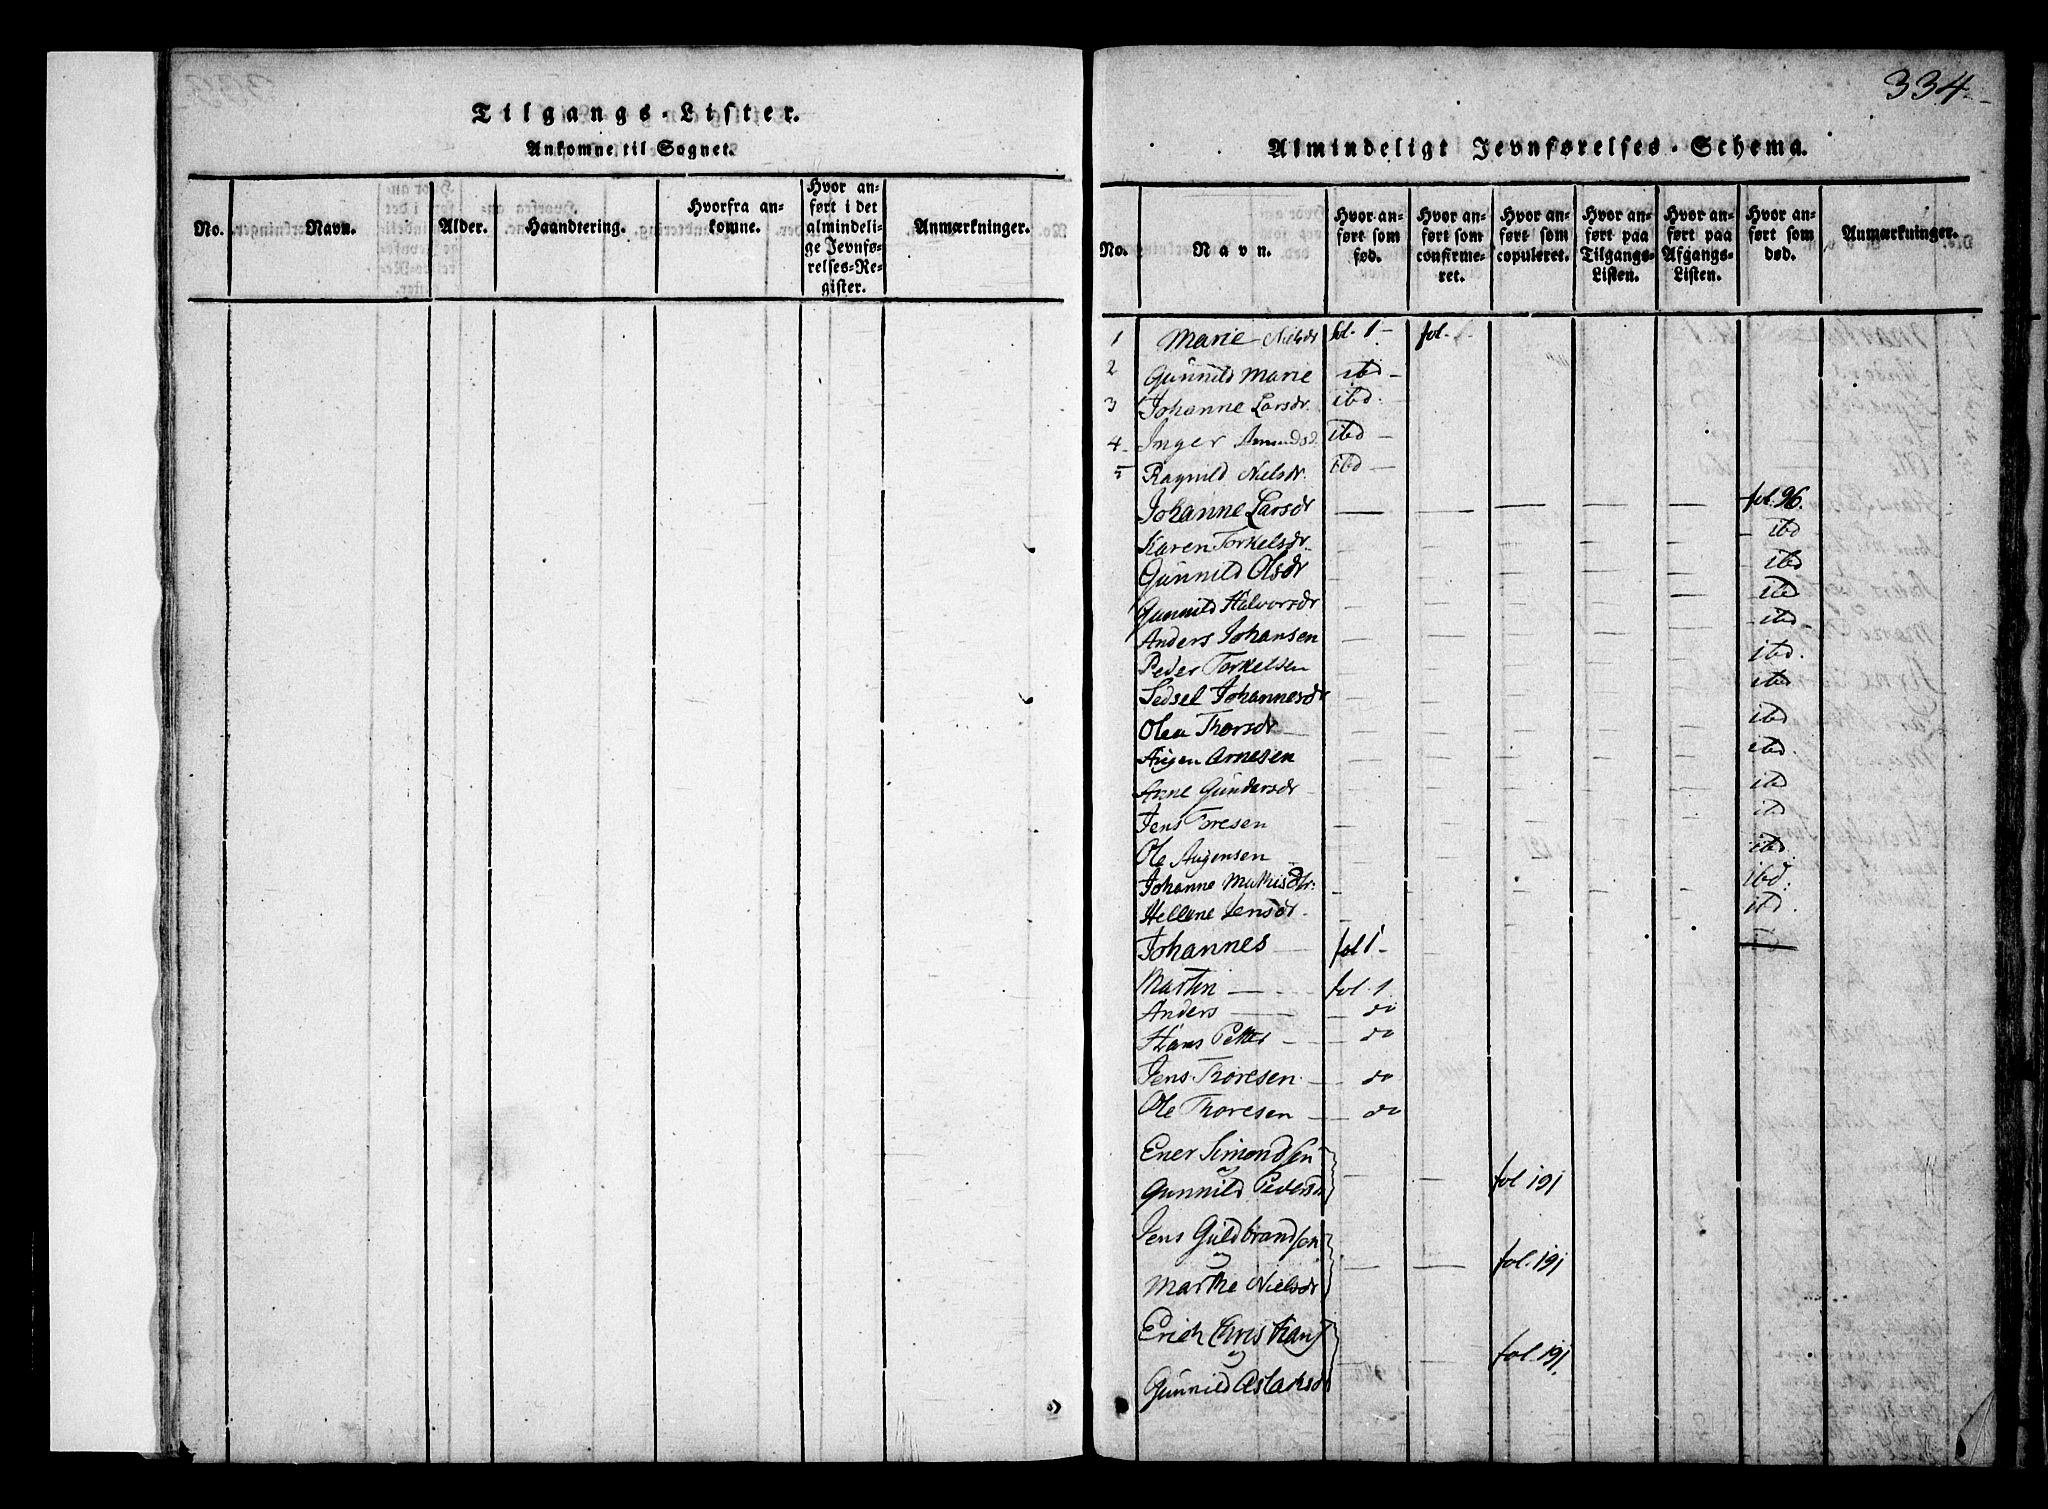 Tilgangs-Lister.
Ankomne til Sognet.
No. Navn. Alder. Haandtering. Hvorfra ankomne. Hvor anført i det almindelige Jevnførelses-Register. Anmærkninger.
334
Almindeligt Jevnførelses-Schema.
No. Navn. Hvor anført som fød. Hvor anført som confirmeret. Hvor anført som copuleret. Hvor anført paa Tilgangs-Listen. Hvor anført paa Afgangs-Listen. Hvor anført som død. Anmærkninger.
1 Marie Nielsdr fol. 1 - fol.
2 Gunnild Marie ibd -
3 Johanne Larsdr. ibd.
4 Inger Amundsd. ibd -
5 Ragnild Nielsdr. ibd -
Johanne Larsdr — — — — — fol. 96.
Karen Torkelsdr. ibd
Gunnild Olsdr ibd
Gunnild Halvorsdr ibd
Anders Johansen ibd
Peder Torkelsen ibd.
Sedsel Johannesdr ibd
Olea Thorsdr ibd
Augen Arnesen ibd.
Anne Gundersdr ibd
Jens Toresen ibd
Ole Augensen ibd
Johanne Mathisdtr. ibd.
Hellene Jensdr. ibd.
Johannes fol 1 -
Martin — fol. 1
Anders — do
Hans Petter - do
Jens Thoresen - do
Ole Thoresen - do
Ener Simondsen
og
Gunnild Pedersd fol 191
Jens Guldbrandsen
og fol. 191
Marthe Nielsdr
Erich Christians
og fol. 191
Gunnild Aslaksd